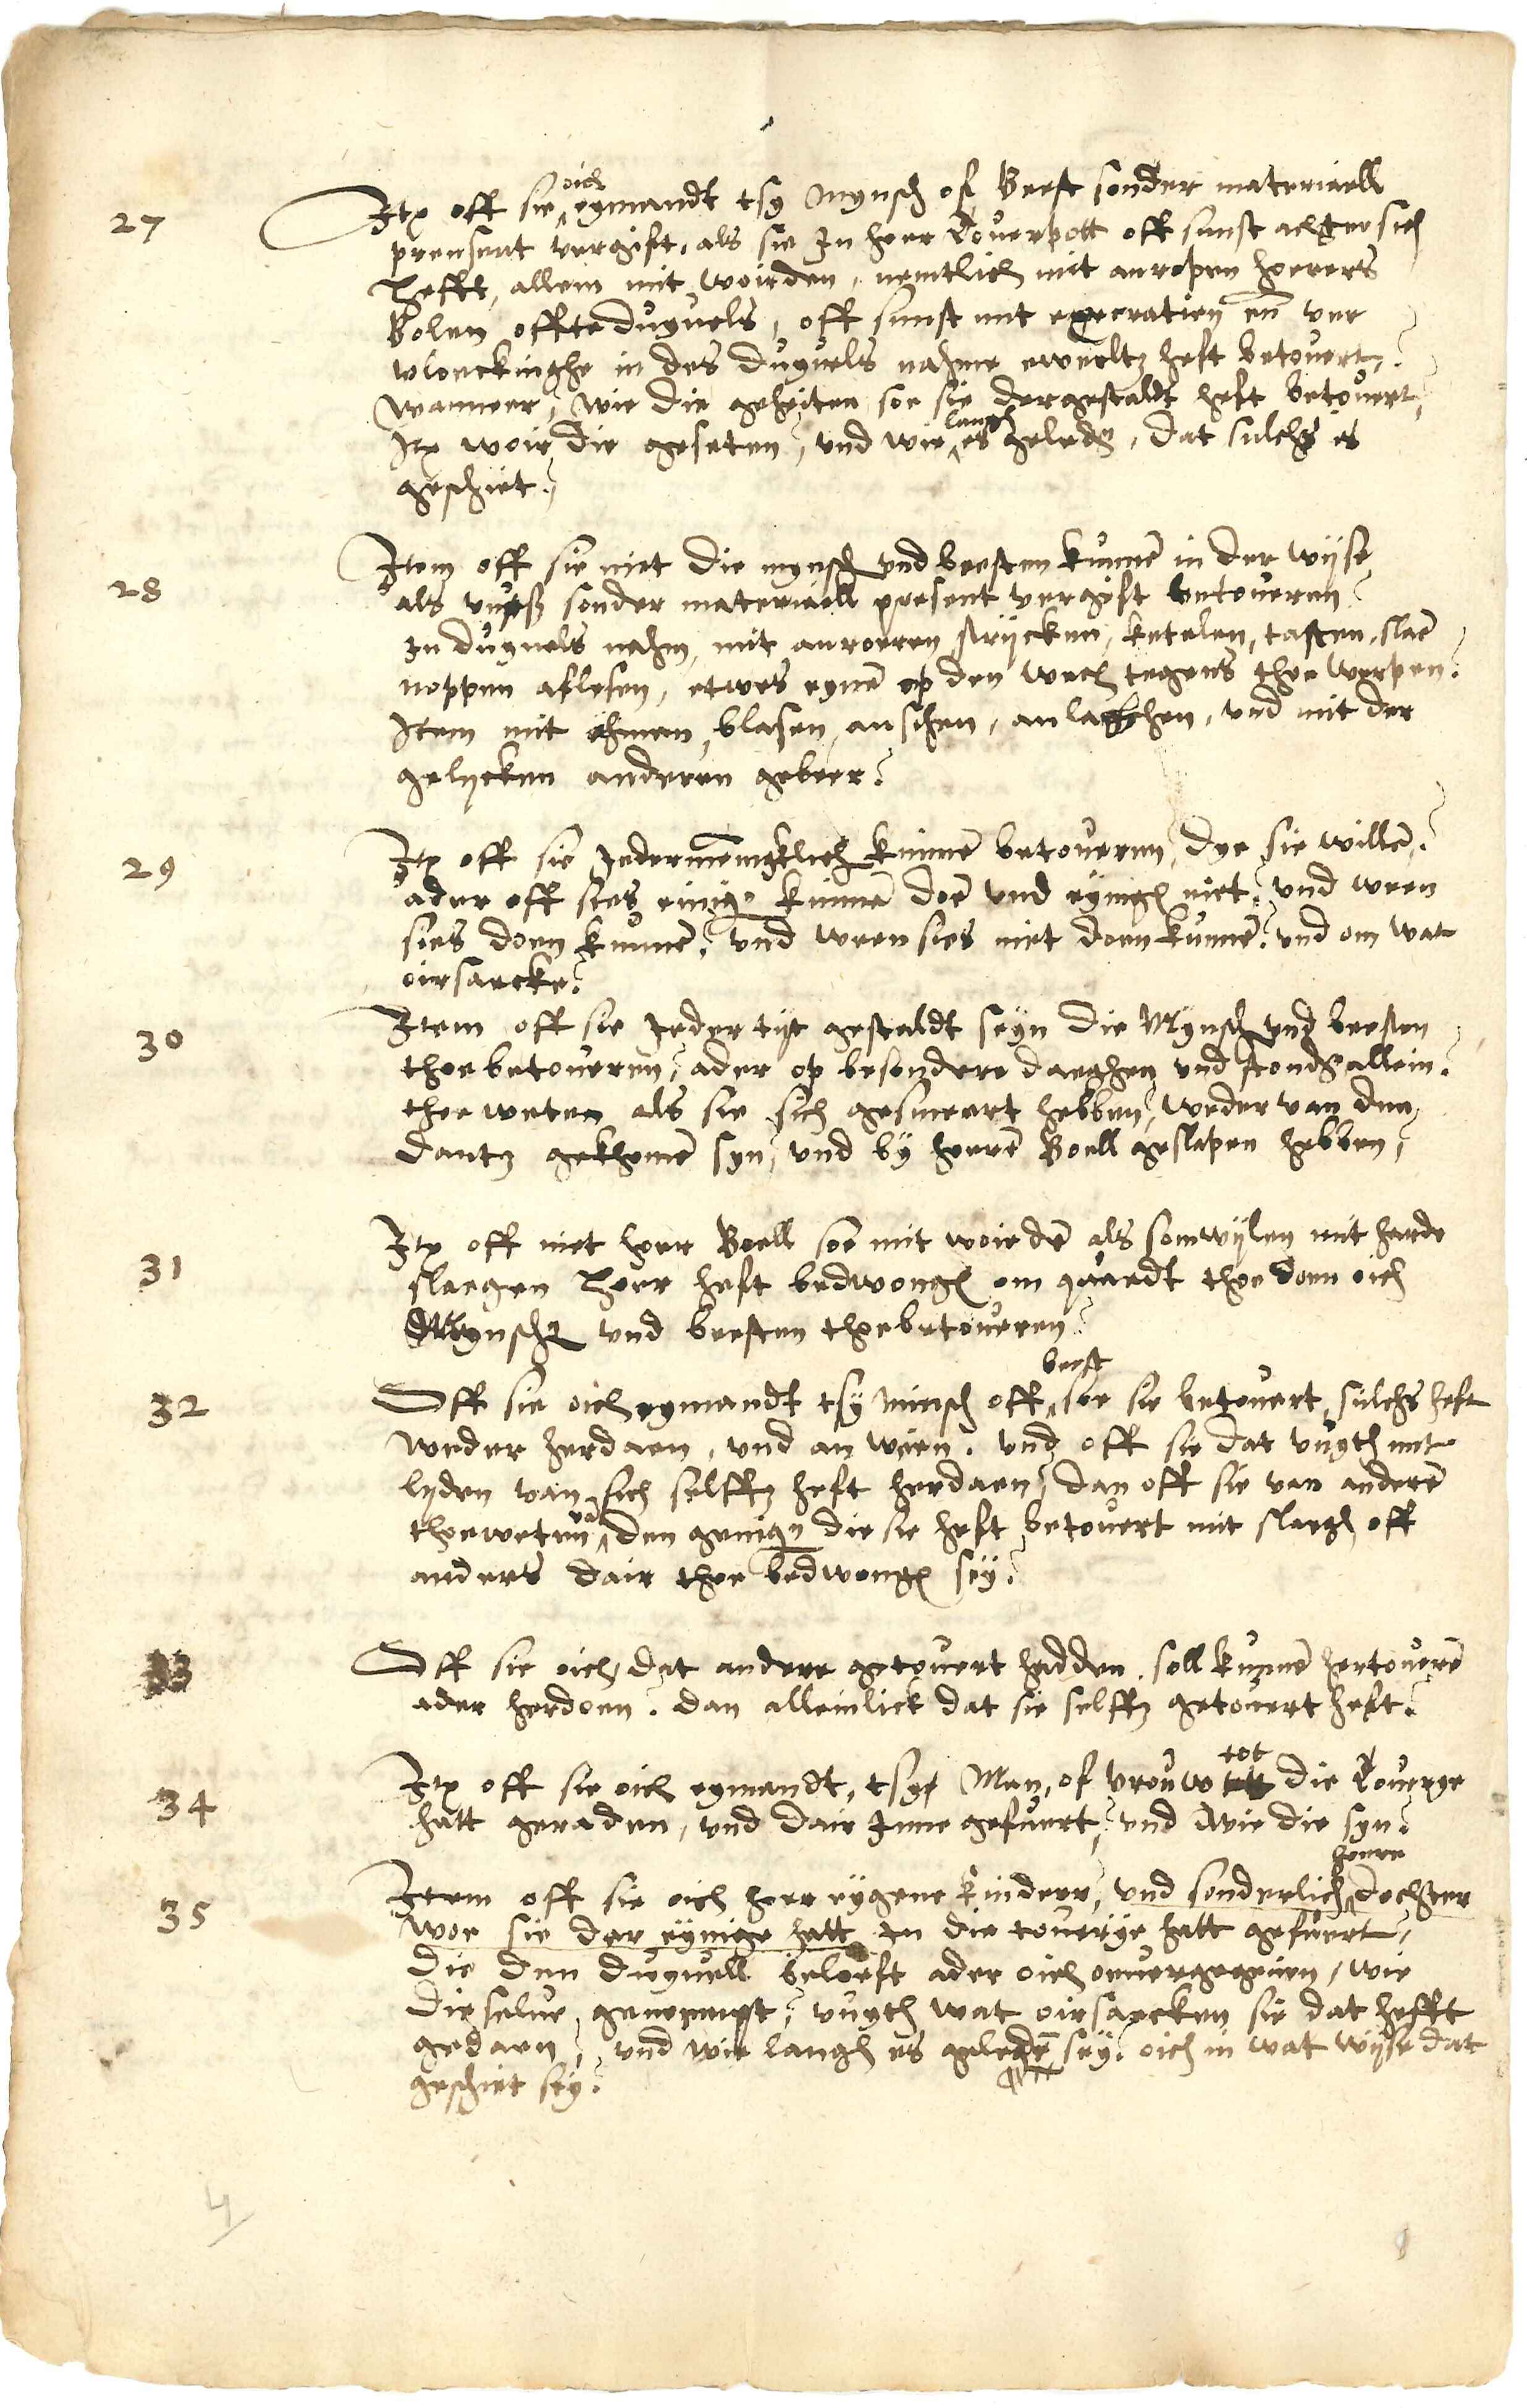 27 Itp off sie oick eymandt tsy Mynsch of Beest sonder materiaell
prensent vergift, als sie In hoer Toverpott off sunst achter sich
hefft, allein mit woirden, nemtlich mit anropen hoerers
Bolen offte duyvels, off sunst mit execratien en ver
vloeckinghe in des duyvels nahme ewerltz heft betovert?
Wanneer, wie die geheiten soe sie dergestaldt heft betovert,
Itp woir die geseten, und wie langh es geleden, dat sulchs is
geschiet?
28 Item off sie niet die mynsch und beesten kunnen in der wyse
als vurß sonder materiaell present vergift betoveren?
In duyvels nahm, mit anroeren strycken, ketelen, tasten, slaen
noppen aflesen, etwes eynen op den wech tegens thoe werpen?
Item mit ahmen, blasen, ansehen, anlachen, und mit der
gelycken anderen gebeer?
29 Itp off sie Jedermenngklich kunnen betoveren, dye sie willen?
ader off sies einige kunnen doen und eynigen niet? und ween
sies doen kunnen? und ween sies niet doen kunnen? und om wat
oirsaecke?
30 Item off sie Jeder tyt gestaldt seyn die Mynsch und beesten
thoe betoveren, ader op besondere daeghen und stonden allein?
thoe weten als sie sich gesmeert hebben, weder van den
dantz gekhomen syn, und by hoeren Boell geslapen hebben?
31 Itp off niet hoer Boell soe mit woirden als somwylen mit harde
slaegen hoer heft bedwongen om quaedt thoe doen oick
Mynschen und beesten thoe betoveren?
32 Off sie oick eymandt tsy minsch off beest soe sie betovert, sulchs heft
weder herdaen, und an wien? und off sie dat vuyth mit
lyden van sich selffz heft herdaen, dan off sie van anderen
thoe weten van den genigen die sie heft betovert mit slaegh off
anders dair thoe bedwongen sey?
33 Off sie oick, dat andere getovert hadden, soll kunnen hertoveren
ader herdoen? dan alleinlick dat sie selffz getovert heft?
34 Itp off sie oick eymandt, tsye Man, of vrouw tot die Toverye
hatt geraden, und dair Inne gefuert, und wie die syn?
35 Item off sie oick hoer eygene kinder, und sonderlich hoere dochter
woe sie der eynige hatt in die toverye hatt gefuert,
die den duyvell beloefft ader oick oevergegeven, wie
dieselve genoempt, vuyth wat oirsaecken sie dat hefft
gedaen, und wie langh es geleden sey? oick in wat wyse dat
geschiet sey?
4